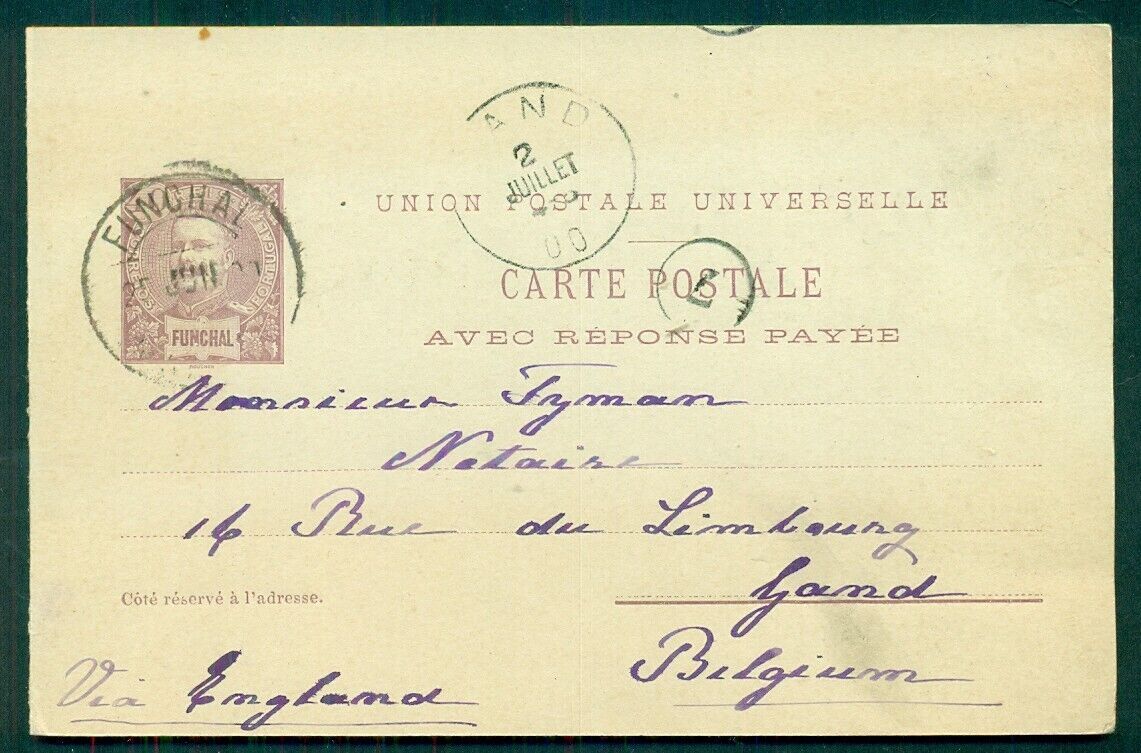 UNION POSTALE UNIVERSELLE
CARTE POSTALE
AVEC RÉPONSE PAYÉE
PORTUGAL
FUNCHAL
FUNCHAL
JUN
AND
2
JUILLET
00
Monsieur Fyman
Notaire
16 Rue du Limbourg
Gand
Belgium
Côté réservé à l'adresse.
Via England